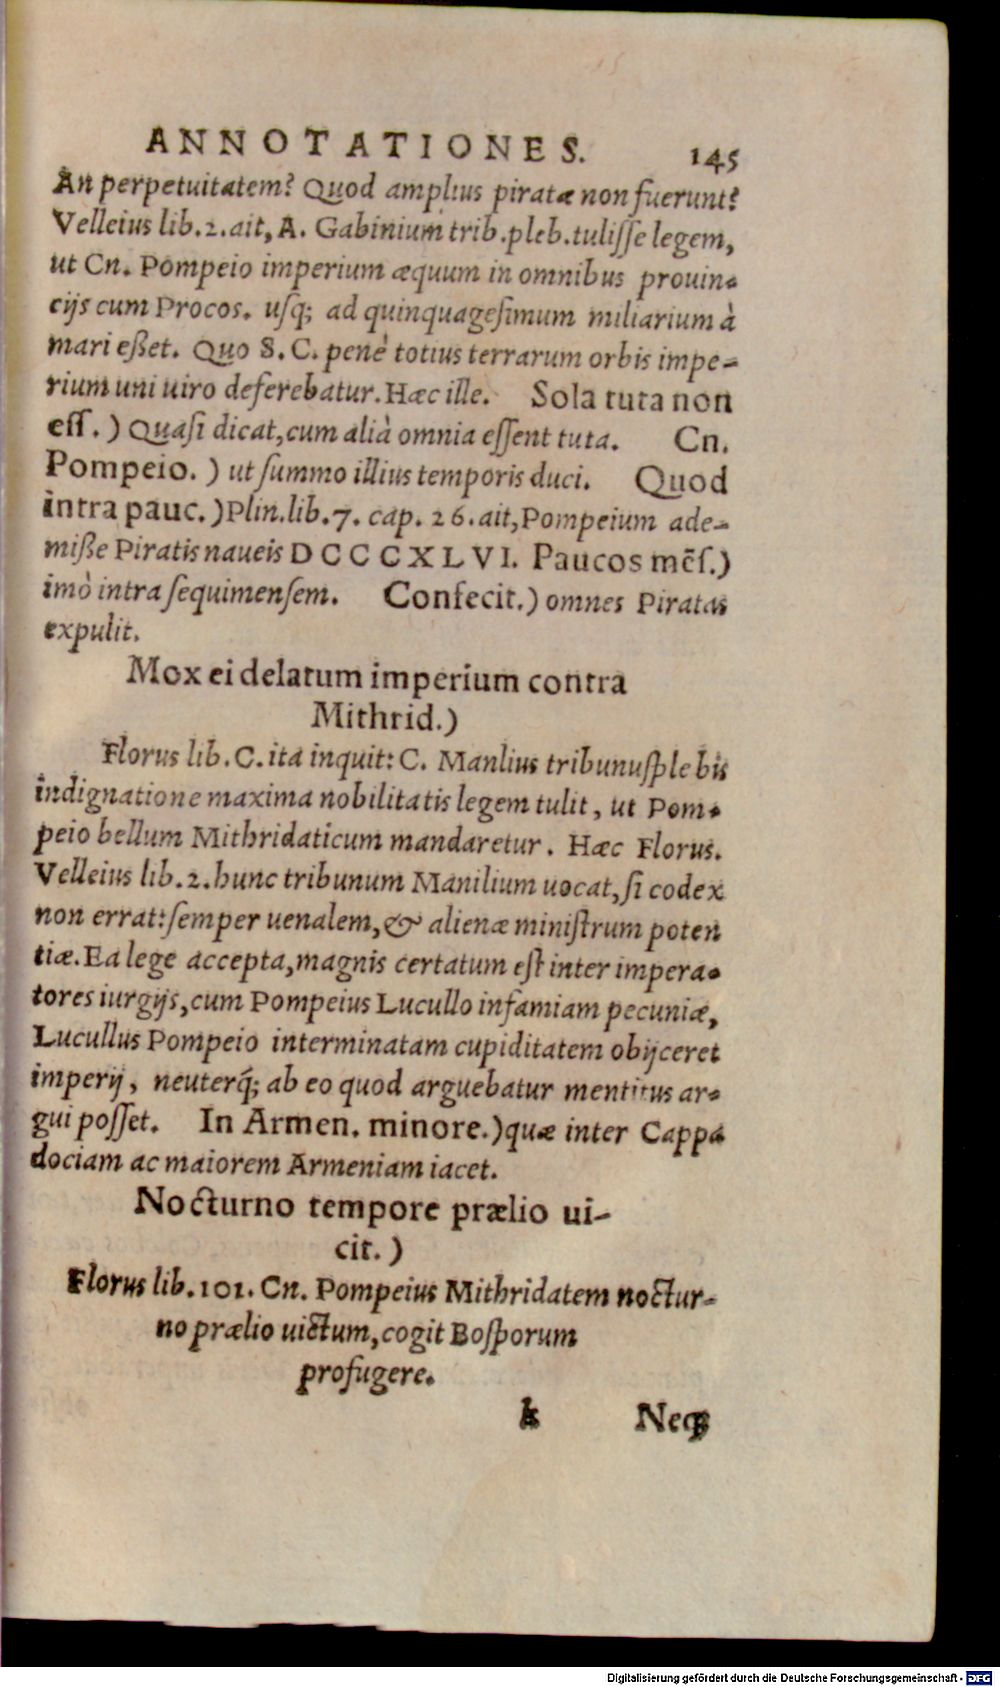 ANNOTATIONES. 145
An perpetuitatem? Quod amplius piratæ non fuerunt?
Velleius lib.2.ait, A. Gabinium trib.pleb.tulisse legem,
ut Cn. Pompeio imperium æquum in omnibus prouin-
cijs cum Procos. usq; ad quinquagesimum miliarium à
mari eßet. Quo S.C. penè totius terrarum orbis impe-
rium uni uiro deferebatur. Hæc ille. Sola tuta non
ess.) Quasi dicat, cum alià omnia essent tuta. Cn.
Pompeio.) ut summo illius temporis duci. Quod
intra pauc.) Plin.lib.7. cap. 26. ait, Pompeium ade-
miße Piratis naueis DCCCXLVI. Paucos mẽs.)
imò intra sequimensem. Confecit.) omnes Piratas
expulit.
Mox ei delatum imperium contra
Mithrid.)
Florus lib. C. ita inquit: C. Manlius tribunus plebis
indignatione maxima nobilitatis legem tulit, ut Pom-
peio bellum Mithridaticum mandaretur. Hæc Florus.
Velleius lib.2. hunc tribunum Manilium uocat, si codex
non errat: semper uenalem, & alienæ ministrum poten
tiæ. Ea lege accepta, magnis certatum est inter impera-
tores iurgijs, cum Pompeius Lucullo infamiam pecuniæ,
Lucullus Pompeio interminatam cupiditatem obijceret
imperij, neuterq́; ab eo quod arguebatur mentitus ar-
gui posset. In Armen. minore.) quæ inter Cappa
dociam ac maiorem Armeniam iacet.
Nocturno tempore prælio ui-
cit.)
Florus lib. 101. Cn. Pompeius Mithridatem noctur-
no prælio uictum, cogit Bosporum
profugere.
k Neq;
Digitalisierung gefördert durch die Deutsche Forschungsgemeinschaft - DFG